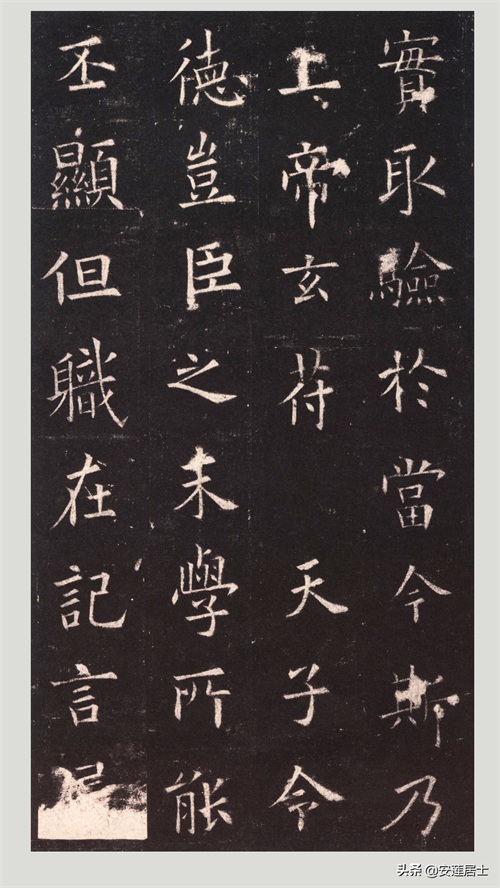 實取驗於當今斯乃
上帝玄苻 天子令
德豈臣之末學所能
丕顯但軄在記言
头条 @安蓮居士